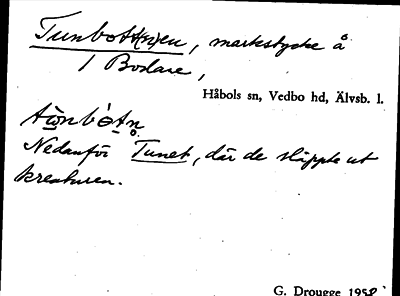 Tunbott(n)en, markstycke å
1 Bodane,
Håbols sn, Vedbo hd, Älvsb. l.
Nedanför Tunet, där de släppte ut
kreaturen.
G. Drougge 1958